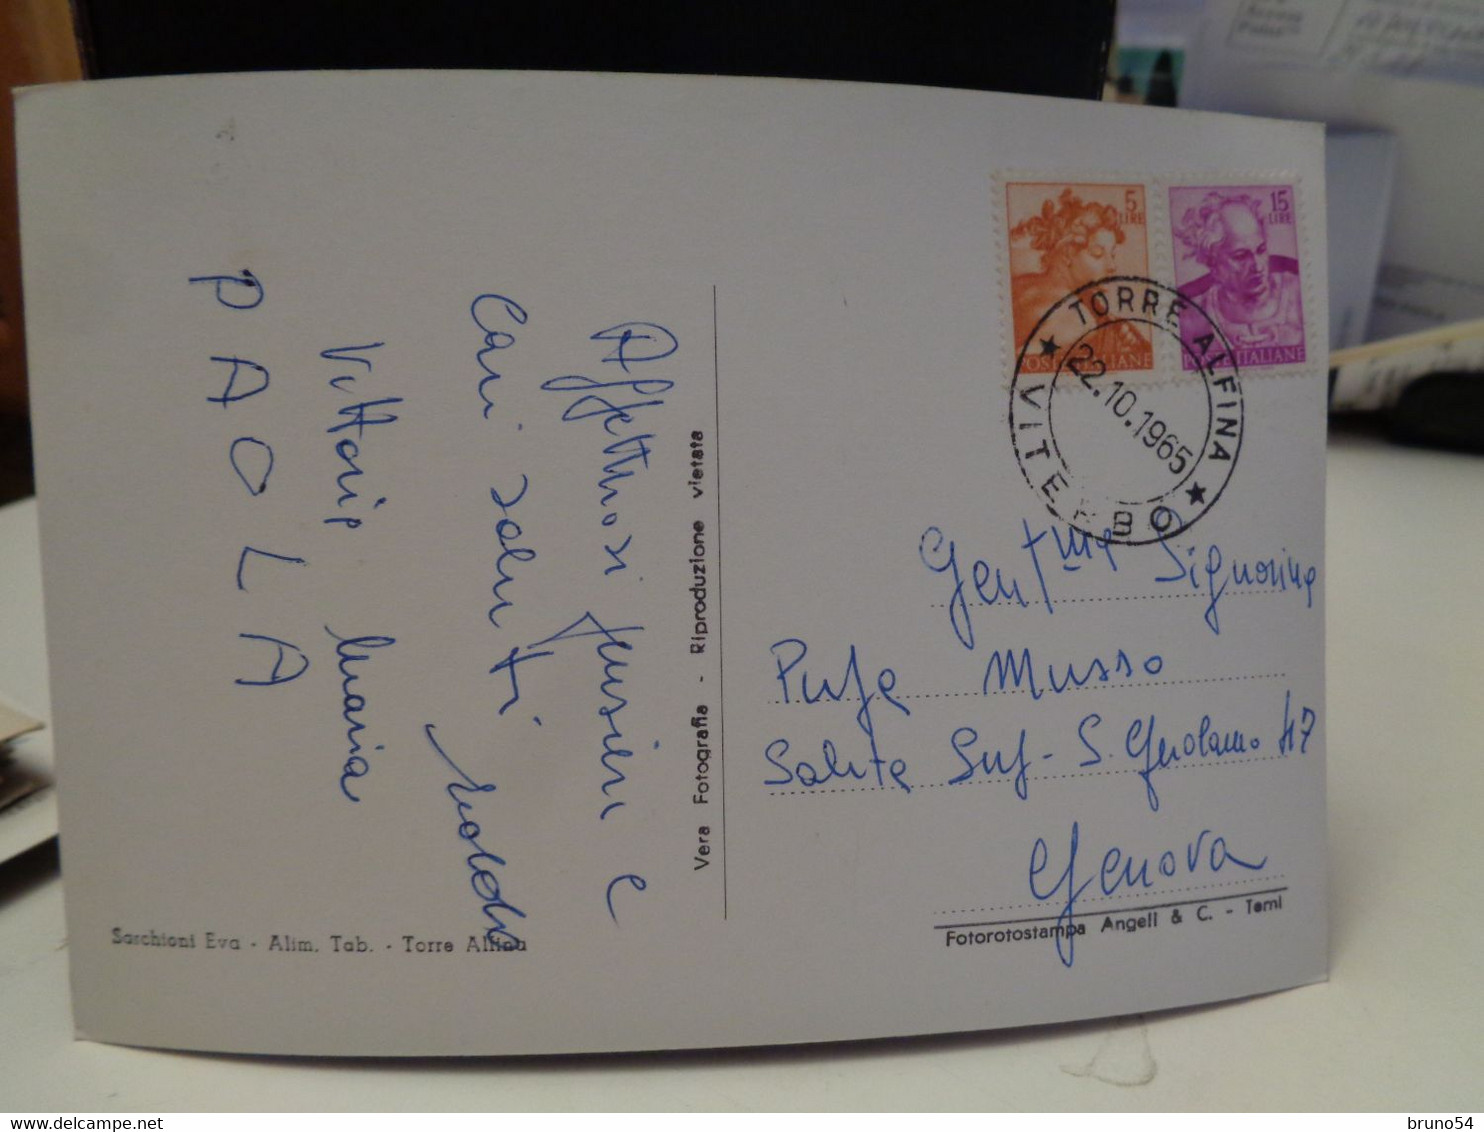 Affettuosi pensieri e
Cari saluti
Vittorio Maria
PAOLA
Sarchioni Eva - Alim. Tab. - Torre Alfina
Vera Fotografia - Riproduzione vietata
5
LIRE
POSTE ITALIANE
15
LIRE
POSTE ITALIANE
TORRE ALFINA
22.10.1965
★ VITERBO ★
Gent.ma Signorina
Musso
Salita Sup. S. Gerolamo 47
Genova
Fotorotostampa Angeli & C. - Terni
bruno54